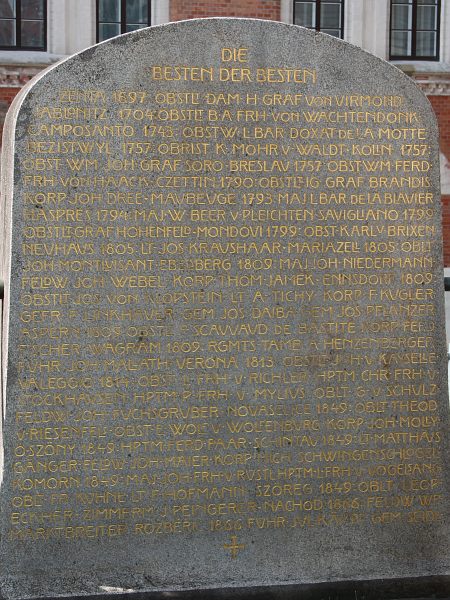 DIE
BESTEN DER BESTEN
ZENTA 1697· OBSTLT· DAM· H· GRAF VON VIRMOND
ABLONITZ· 1704· OBSTLT· B·A· FRH· VON WACHTENDONK
CAMPOSANTO 1743· OBSTW· L· BAR· DOXAT DE LA MOTTE
1757· OBRIST K· MOHR V· WALDT· KOLIN 1757·
OBST·WM· JOH· GRAF SORO· BRESLAV 1757· OBST·WM· FERD·
FRH· VON HAACK· CZETTIN 1790· OBSTLT· IG· GRAF BRANDIS
KORP· JOH· MAVBEVGE 1793· MAJ· L· BAR· DE LA BLAVIER
HASPRES 1794· MAJ· W· BEER V· PLEICHTEN· SAVIGLIANO 1799·
OBSTLT· GRAF HOHENFELD· MONDOVI 1799· OBST· KARL V· BRIXEN
NEVHAUS 1805· LT· JOS· KRAUSHAAR· MARIAZELL 1805· OBLT·
JOH· MONTLVISANT· EBELBERG 1809· MAJ· JOH· NIEDERMANN
FELDW· JOH· WEBEL· KORP· THOM· JAMEK· ENNSDORF 1809·
OBSTLT· JOS· VON KLOPSTEIN· LT· A· TICHY· KORP· F· KUGLER
GEFR· F· LINKHAUER· GEM· JOS· DAIBA· GEM· JOS· PFLANZER
ASPERN 1809· OBSTLT· F· SCAVVAUD· DE BASTITE· KORP· FELD
WAGRAM 1809· RGMTS· TAMB· A· HENZENBERGER
FUHR· JOH· MALATH· VERONA 1813· OBSTLT· J·H· V·
VALEGGIO 1814· OBSTLT· FRH· V· RICHLER· HPTM· CHR· FRH· V·
STOCKHAUSEN· HPTM· P· FRH· V· MYLIUS· OBLT· G· V· SCHULZ·
FELDW· JOH· FUCHSGRUBER· NOVASELICE 1849· OBLT· THEOD·
V· RIESENFEL· OBST· E· WOLF V· WOLFENBURG· KORP· JOH· MOLLY·
OSZONY 1849· HPTM· FERD· PAAR· SC· INTAU 1849· LT· MATTHAUS
GANGER· FELDW· JOH· MAIER· KORP· MICH· SCHWINGENSCHLOGL·
KOMORN 1849· MAJ· JOH· FRH· V· RUSTL· HPTM· L· FRH· V· VOGELSANG
OBLT· FR· KÜHNE· LT· F· HOFMANN· SZOREG 1849· OBLT· LEOP·
ECCHER· ZIMMERM· J· PEINIGERER· NACHOD 1866· FELDW· WP·
MARKTBREITER· ROZBERIC 1866· FUHR· GEM·